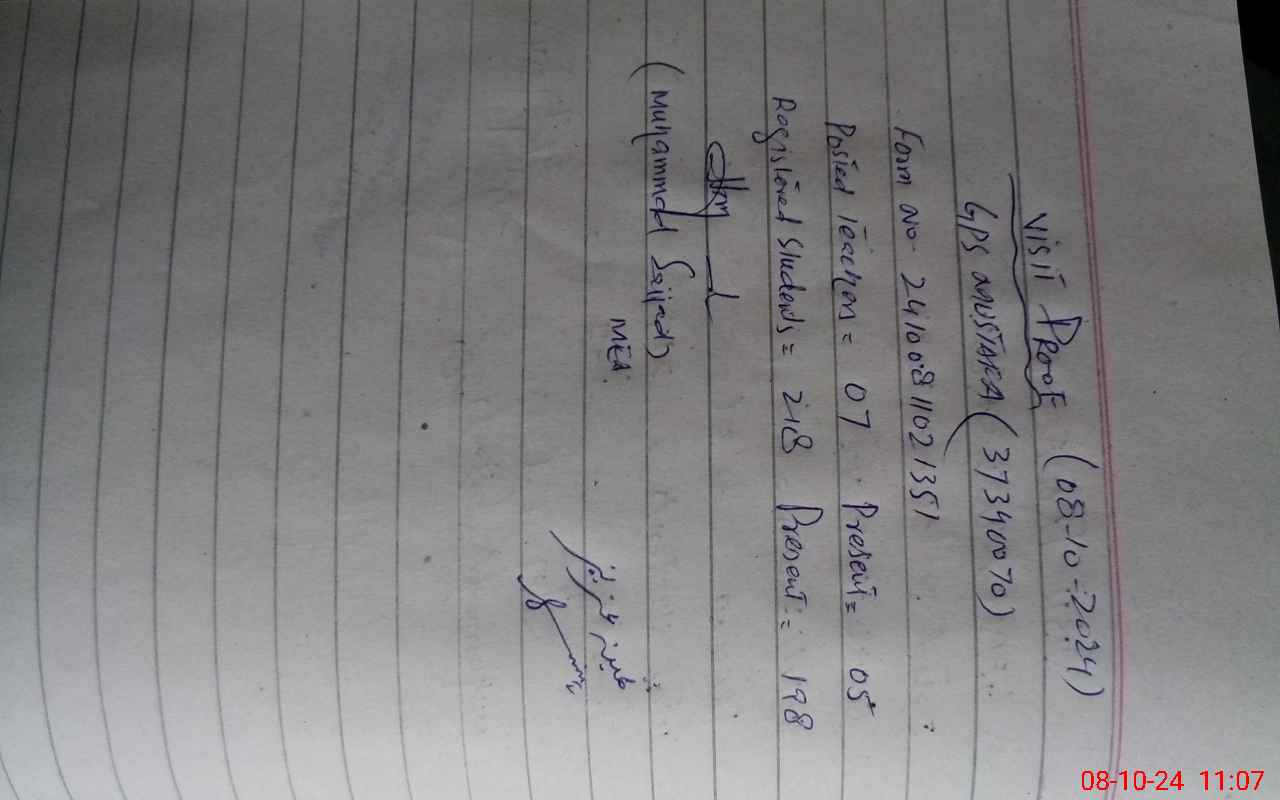 VISIT PROOF (08-10-2024)
GPS MUSTAFA (37340070)
Form No. 24100811021351
Posted Teachers = 07 Present = 05
Registered Students = 218 Present = 198
(Muhammad Sajjad)
MEA
08-10-24 11:07